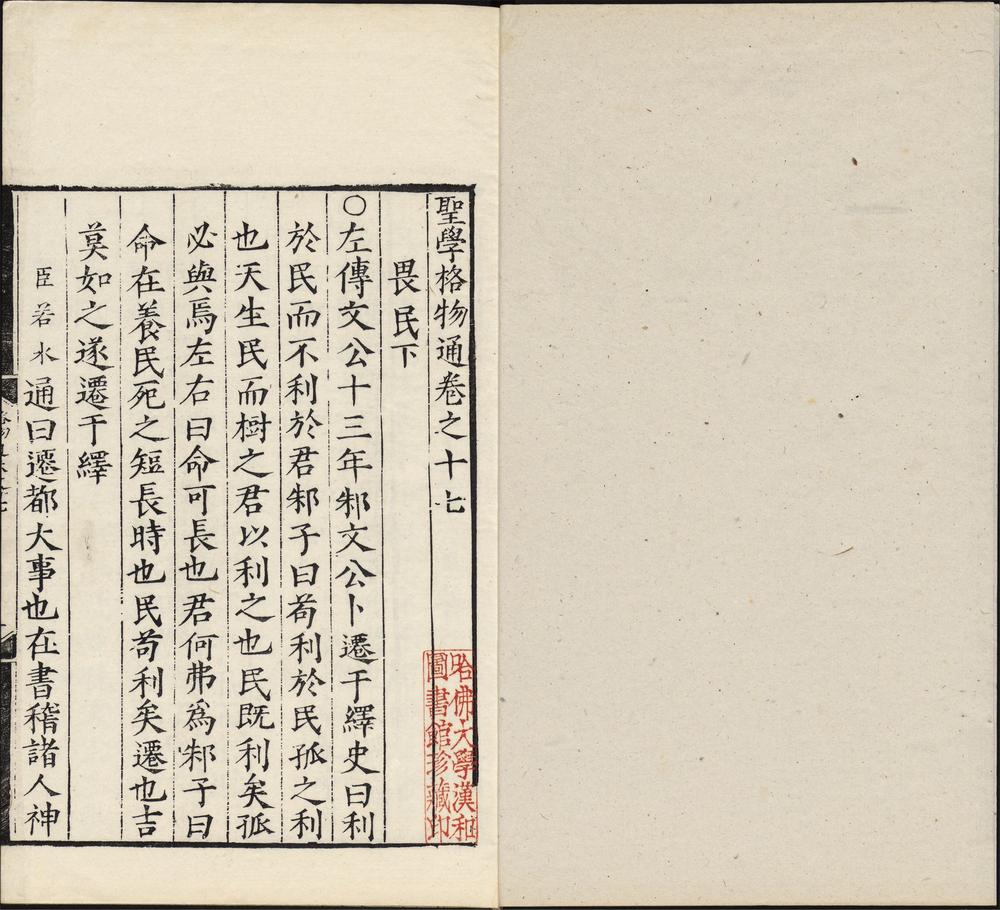 聖學格物通卷之十七
畏民下
○左傳文公十三年邾文公卜遷于繹史曰利
於民而不利於君邾子曰苟利於民孤之利
也天生民而樹之君以利之也民既利矣孤
必與焉左右曰命可長也君何弗爲邾子曰
命在養民死之短長時也民苟利矣遷也吉
莫如之遂遷于繹
臣若水通曰遷都大事也在書稽諸人神
哈佛大學漢和
圖書館珍藏印